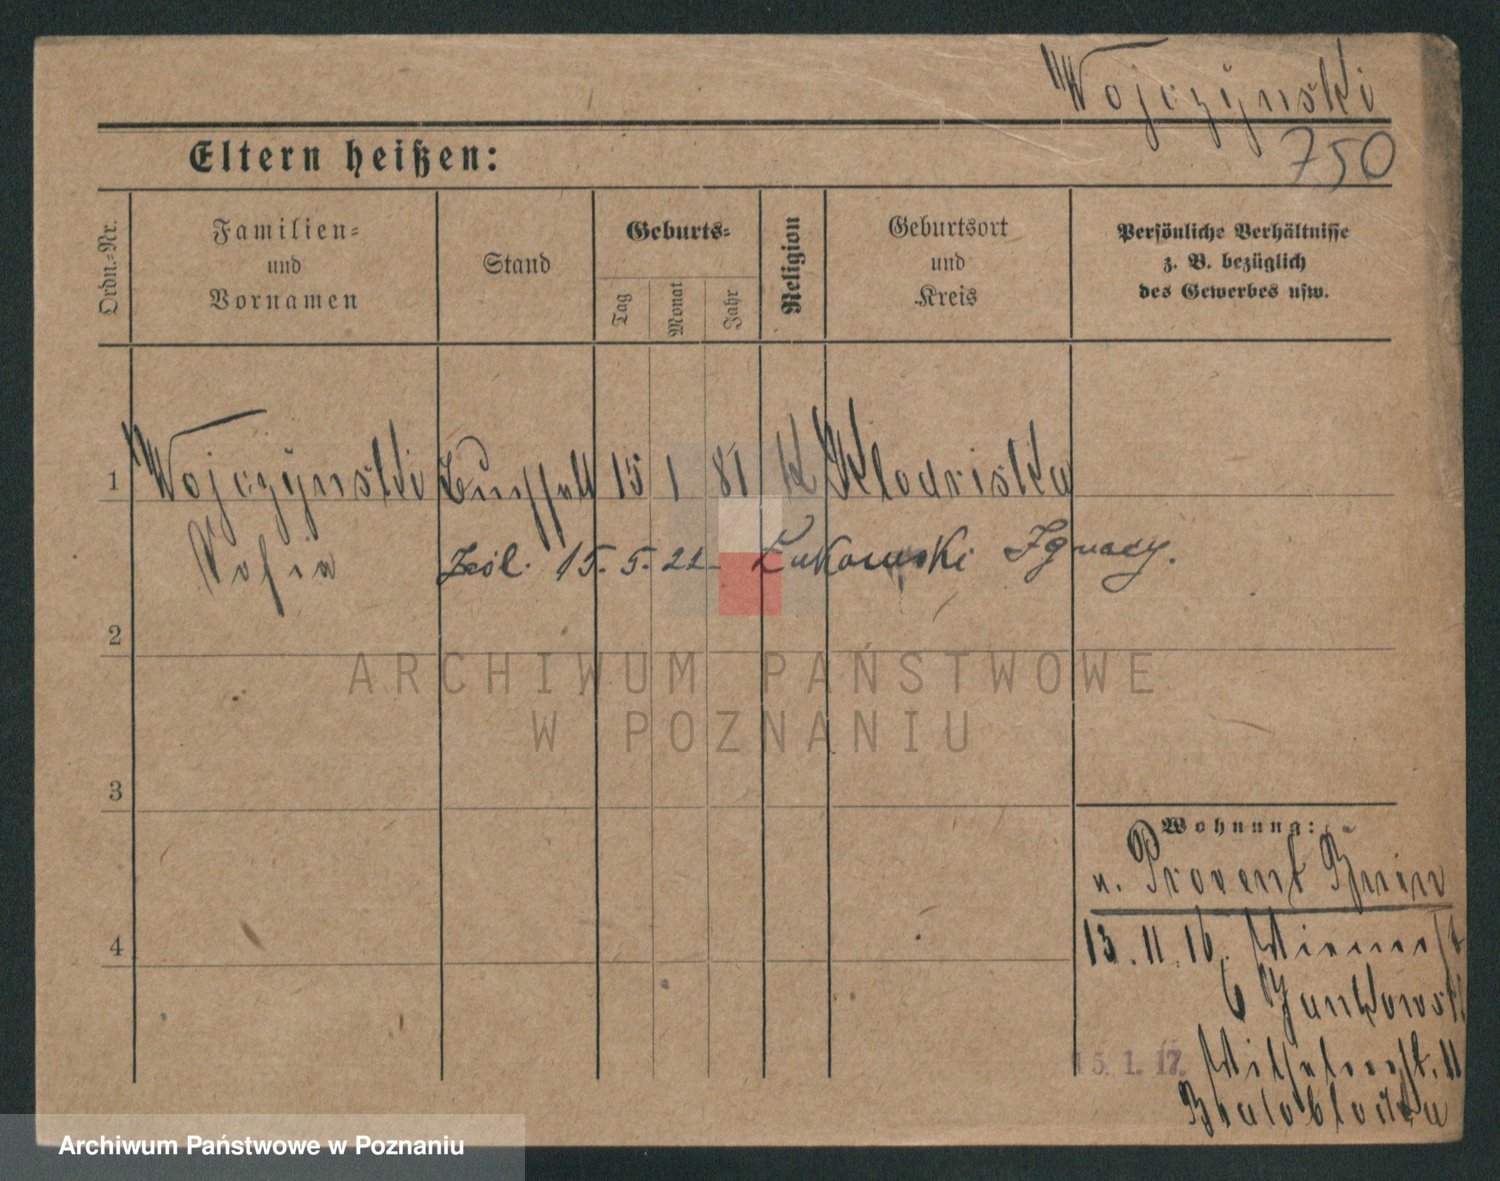 Wojczynski
750
Eltern heißen:
Ordn.-Nr.
Familien-
und
Vornamen
Stand
Geburts-
Tag
Monat
Jahr
Religion
Geburtsort
und
Kreis
Persönliche Verhältnisse
z. B. bezüglich
des Gewerbes usw.
1 Wojczynski 15 1 81 K
Sofia 15. 5. 22 Łukowski Ignacy.
2
3
4
ARCHIWUM PAŃSTWOWE
W POZNANIU
Wohnung:
u. Provent Bnin
13. 11. 16.
6 Jankowski
15. 1. 17. 11
Archiwum Państwowe w Poznaniu